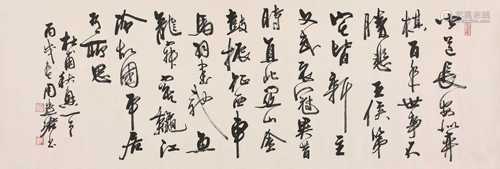 聞道長安似弈
棋百年世事不
勝悲王侯第
宅皆新主
文武衣冠異昔
時直北關山金
鼓振征西車
馬羽書馳魚
龍寂寞秋江
冷故國平居
有所思
杜甫秋興一首
丙戌 周 書